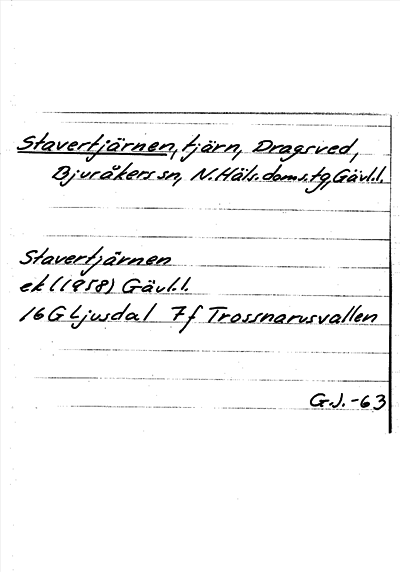 Stavertjärnen, tjärn, Dragsved,
Bjuråkers sn, N.Häls.doms.tg, Gävl.l.
Stavertjärnen
ek (1958) Gävl.l.
16G Ljusdal 7f Trossnarusvallen
G.J.-63